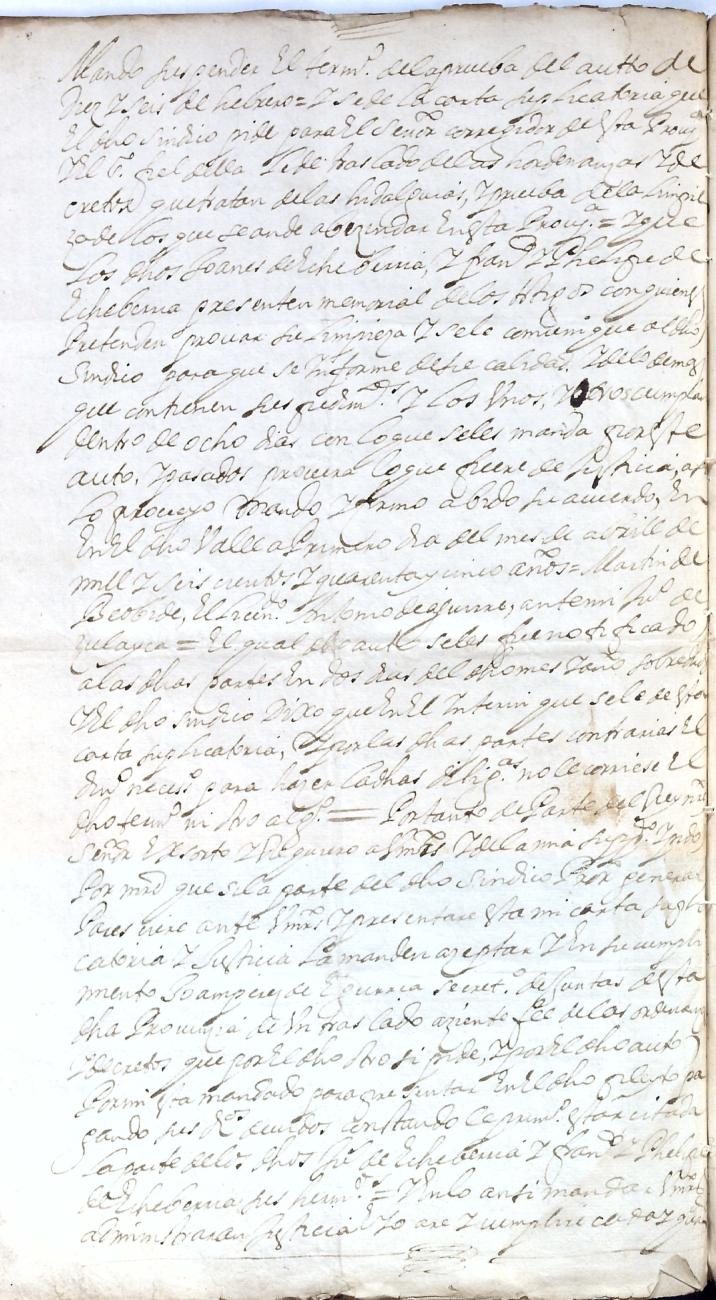 Mando suspender El termº. de la prueba del autto de
Diez Y seis de hebrero = Y se de la carta suplicatoria que
El dho sindico pide para El señor corregidor de esta Provª
Y El sº fiel della le de traslado de las hordenanzas Y de
cretos que tratan de las hidalguias, Y prueba de la limpie
za de los que se an de abezindar En esta Provª. = Y que
Los dhos Joanes de Echeberria, Y franᶜᵒ Y Phelipe de
Echeberria presenten memorial de los testigos con quienes
Pretenden provar su limpieza Y se le comunique al dho
Sindico para que se Informe de su calidad, Y de lo demas
que contienen sus pedimᵗᵒˢ Y Los Unos, Y otros cumplan
dentro de ocho dias con lo que se les manda por este
auto, Y pasados provera lo que fuere de Justicia, assi
Lo proveyo Mando Y firmo abido su acuerdo, En
En El dho Valle a Primero dia del mes de abrill de
mill Y seis cientos Y quarenta y cinco años = Martin de
Beobide, El Licenᵈᵒ. Antonio de aguirre, ante mi Juº de
Zulayca = El qual dho auto se les fue notificado
a las dhas partes En dos dias del dho mes Y año sobredho
Y El dho sindico Dixo que En El Interin que se le de esta
carta suplicatoria, Y por las dhas partes contrarias El
dinº necesº para hazer las dhas diligᵃˢ no le corriese El
dho termº ni otro algº. = Por tanto de Parte del Rey nro
Señor Exsorto Y Requiero a Vmrs Y de la mia suppᶜᵒ Y pido
Por mrd que si la parte del dho Sindico Pror general
Pareciere ante Vmrs Y presentare esta mi carta supli
catoria Y Justicia La manden azeptar Y En su cumpli
miento Joan perez de Egurrza Secretº de Juntas de esta
dha Provincia de Un traslado aziente fee de las ordenanzas
Y decretos que por El dho otro si pide, Y por El dho auto
Por mi esta mandado para presentar En El dho pleyto pa
gando sus dros devidos constando le primº. estar citada
La parte de los dhos Juº de Echeberria Y franᶜᵒ Y Phelipe
de Echeberria sus hermºˢ = Y En lo ansi mandar Vmrs
administraran Justicia Y Yo are Y cumplire cada Y quan